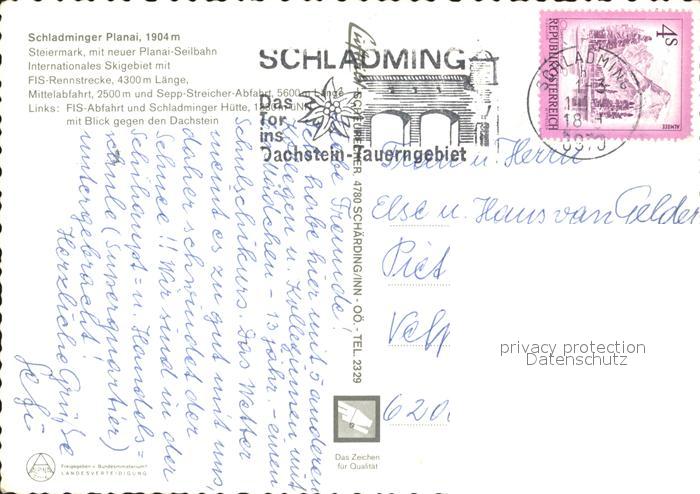 Schladminger Planai, 1904 m
Steiermark, mit neuer Planai-Seilbahn
Internationales Skigebiet mit
FIS-Rennstrecke, 4300 m Länge,
Mittelabfahrt, 2500 m und Sepp-Streicher-Abfahrt, 5600 m Länge
Links: FIS-Abfahrt und Schladminger Hütte,
mit Blick gegen den Dachstein
SCHLADMING
Das
Tor
ins
Dachstein-Tauerngebiet
SCHLADMING
REPUBLIK ÖSTERREICH
4 S
ALMSEE
4780 SCHÄRDING/INN - OÖ. - TEL. 2329
Liebe Freunde!
Ich habe hier mit 5 anderen
Kollegen u. Kolleginnen mit
Mädchen - 13 jähr. - einen
Schulschikurs. Das Wetter
meint es zu gut mit uns,
daher schwindet der
Schnee!! Wir sind in der
Schihaupt= u. Handels=
schule (Superquartier)
untergebracht!
Herzliche Grüße
Frau u. Herrn
Else u. Hans van Gelder
Piet
Velp
620
privacy protection
Datenschutz
Das Zeichen
für Qualität
Freigegeben v. Bundesministerium f.
LANDESVERTEIDIGUNG